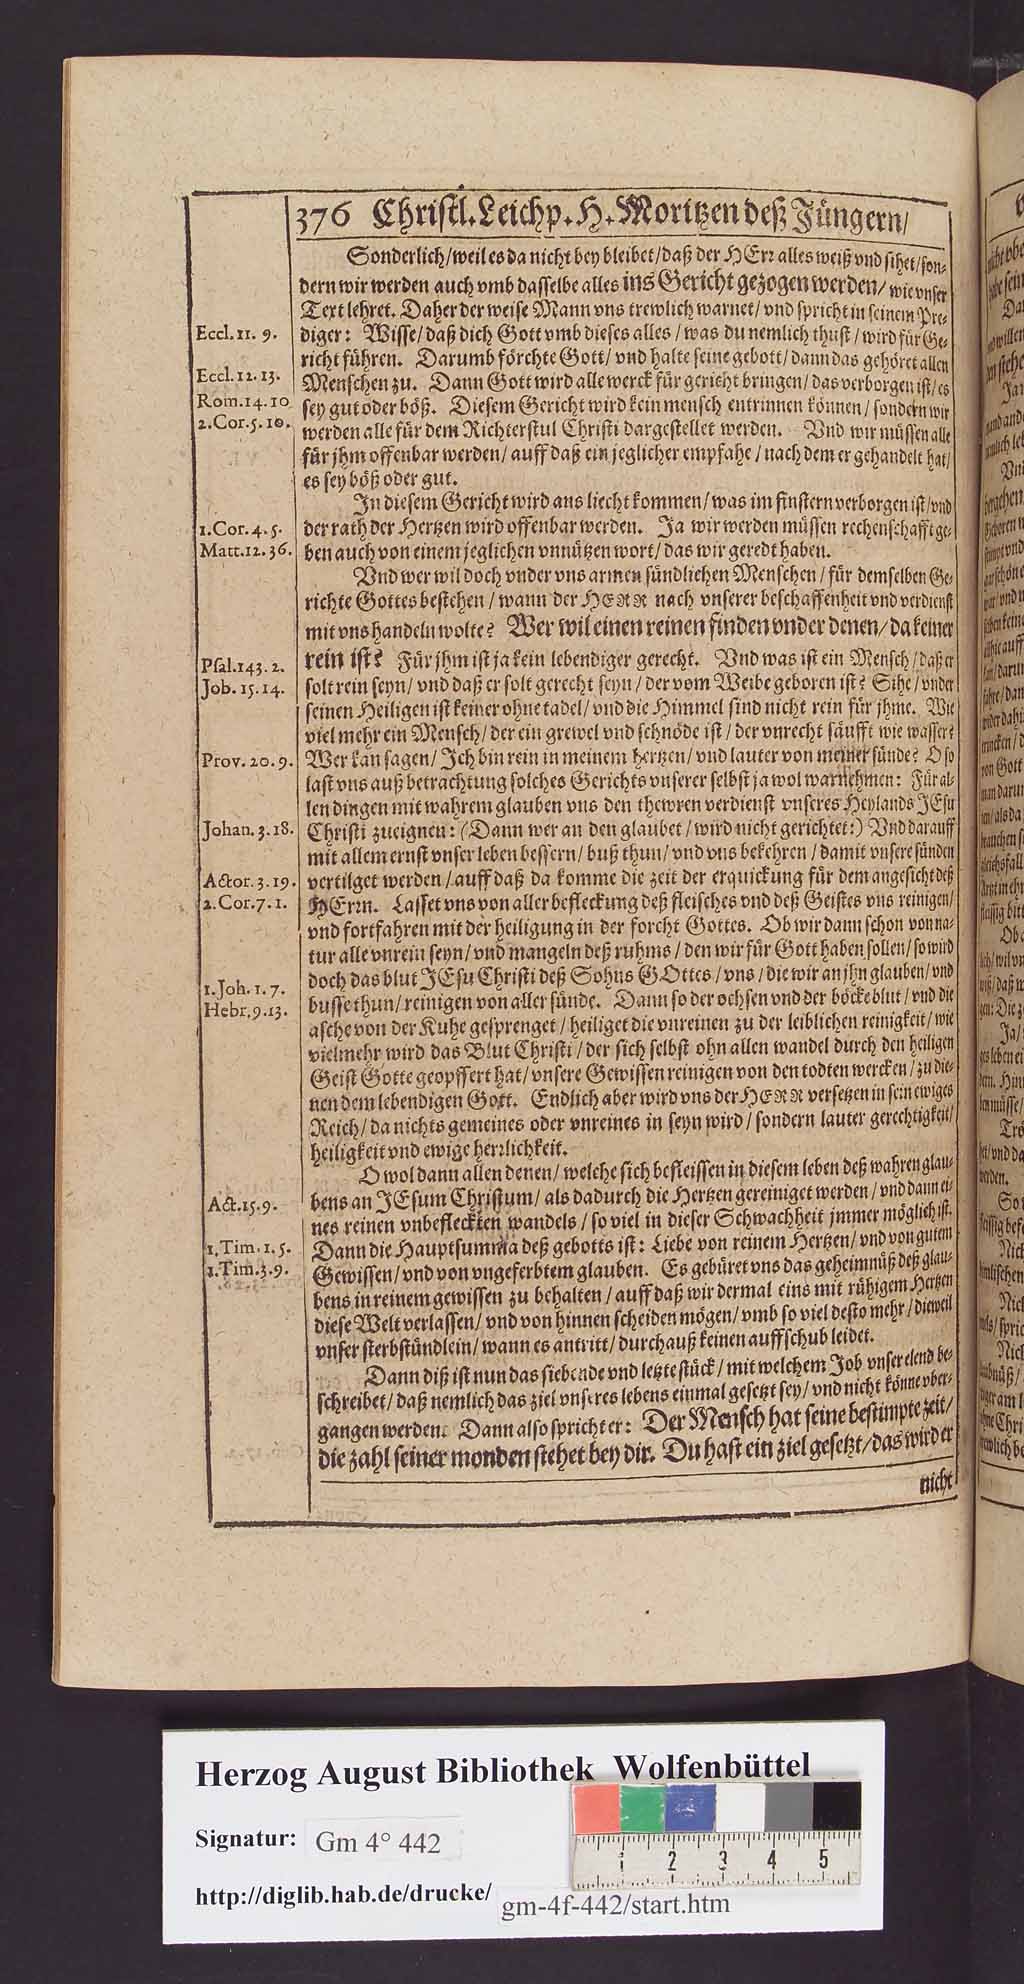 376 Christl. Leichp. H. Moritzen deß Jüngern/
Sonderlich/ weil es da nicht bey bleibet/ daß der HErr alles weiß vnd sihet/ son-
dern wir werden auch vmb dasselbe alles ins Gericht gezogen werden/ wie vnser
Text lehret. Daher der weise Mann vns trewlich warnet/ vnd spricht in seinem Pre-
Eccl. 11. 9.
diger: Wisse/ daß dich Gott vmb dieses alles/ was du nemlich thust/ wird für Ge-
richt führen. Darumb förchte Gott/ vnd halte seine gebott/ dann das gehöret allen
Eccl. 12. 13.
Menschen zu. Dann Gott wird alle werck für gericht bringen/ das verborgen ist/ es
Rom. 14. 10
sey gut oder böß. Diesem Gericht wird kein mensch entrinnen können/ sondern wir
2. Cor. 5. 10.
werden alle für dem Richterstul Christi dargestellet werden. Vnd wir müssen alle
für jhm offenbar werden/ auff daß ein jeglicher empfahe/ nach dem er gehandelt hat/
es sey böß oder gut.
In diesem Gericht wird ans liecht kommen/ was im finstern verborgen ist/ vnd
1. Cor. 4. 5.
der rath der Hertzen wird offenbar werden. Ja wir werden müssen rechenschafft ge-
Matt. 12. 36.
ben auch von einem jeglichen vnnützen wort/ das wir geredt haben.
Vnd wer wil doch vnder vns armen sündlichen Menschen/ für demselben Ge-
richte Gottes bestehen/ wann der HERR nach vnserer beschaffenheit vnd verdienst
mit vns handeln wolte? Wer wil einen reinen finden vnder denen/ da keiner
Psal. 143. 2.
rein ist? Für jhm ist ja kein lebendiger gerecht. Vnd was ist ein Mensch/ daß er
Job. 15. 14.
solt rein seyn/ vnd daß er solt gerecht seyn/ der vom Weibe geboren ist? Sihe/ vnder
seinen Heiligen ist keiner ohne tadel/ vnd die Himmel sind nicht rein für jhme. Wie
viel mehr ein Mensch/ der ein grewel vnd schnöde ist/ der vnrecht säufft wie wasser?
Prov. 20. 9.
Wer kan sagen/ Ich bin rein in meinem hertzen/ vnd lauter von meiner sünde? O so
last vns auß betrachtung solches Gerichts vnserer selbst ja wol warnehmen: Für al-
len dingen mit wahrem glauben vns den thewren verdienst vnseres Heylands JEsu
Johan. 3. 18.
Christi zueignen: (Dann wer an den glaubet/ wird nicht gerichtet:) Vnd darauff
mit allem ernst vnser leben bessern/ buß thun/ vnd vns bekehren/ damit vnsere sünden
Actor. 3. 19.
vertilget werden/ auff daß da komme die zeit der erquickung für dem angesicht deß
2. Cor. 7. 1.
HErrn. Lasset vns von aller befleckung deß fleisches vnd deß Geistes vns reinigen/
vnd fortfahren mit der heiligung in der forcht Gottes. Ob wir dann schon von na-
tur alle vnrein seyn/ vnd mangeln deß ruhms/ den wir für Gott haben sollen/ so wird
doch das blut JEsu Christi deß Sohns GOttes/ vns/ die wir an jhn glauben/ vnd
1. Joh. 1. 7.
busse thun/ reinigen von aller sünde. Dann so der ochsen vnd der böcke blut/ vnd die
Hebr. 9. 13.
asche von der Kuhe gesprenget/ heiliget die vnreinen zu der leiblichen reinigkeit/ wie
vielmehr wird das Blut Christi/ der sich selbst ohn allen wandel durch den heiligen
Geist Gotte geopffert hat/ vnsere Gewissen reinigen von den todten wercken/ zu die-
nen dem lebendigen Gott. Endlich aber wird vns der HERR versetzen in sein ewiges
Reich/ da nichts gemeines oder vnreines in seyn wird/ sondern lauter gerechtigkeit/
heiligkeit vnd ewige herrlichkeit.
O wol dann allen denen/ welche sich befleissen in diesem leben deß wahren glau-
Act. 15. 9.
bens an JEsum Christum/ als dadurch die Hertzen gereiniget werden/ vnd dann ei-
nes reinen vnbefleckten wandels/ so viel in dieser Schwachheit jmmer möglich ist.
1. Tim. 1. 5.
Dann die Hauptsumma deß gebotts ist: Liebe von reinem Hertzen/ vnd von gutem
1. Tim. 3. 9.
Gewissen/ vnd von vngeferbtem glauben. Es gebüret vns das geheimnüß deß glau-
bens in reinem gewissen zu behalten/ auff daß wir dermal eins mit rühigem Hertzen
diese Welt verlassen/ vnd von hinnen scheiden mögen/ vmb so viel desto mehr/ dieweil
vnser sterbstündlein/ wann es antritt/ durchauß keinen auffschub leidet.
Dann diß ist nun das siebende vnd letzte stück/ mit welchem Job vnser elend be-
schreibet/ daß nemlich das ziel vnseres lebens einmal gesetzt sey/ vnd nicht könne vber-
gangen werden. Dann also spricht er: Der Mensch hat seine bestimpte zeit/
die zahl seiner monden stehet bey dir. Du hast ein ziel gesetzt/ das wird er
nicht
Herzog August Bibliothek Wolfenbüttel
Signatur: Gm 4° 442
http://diglib.hab.de/drucke/ gm-4f-442/start.htm
1 2 3 4 5